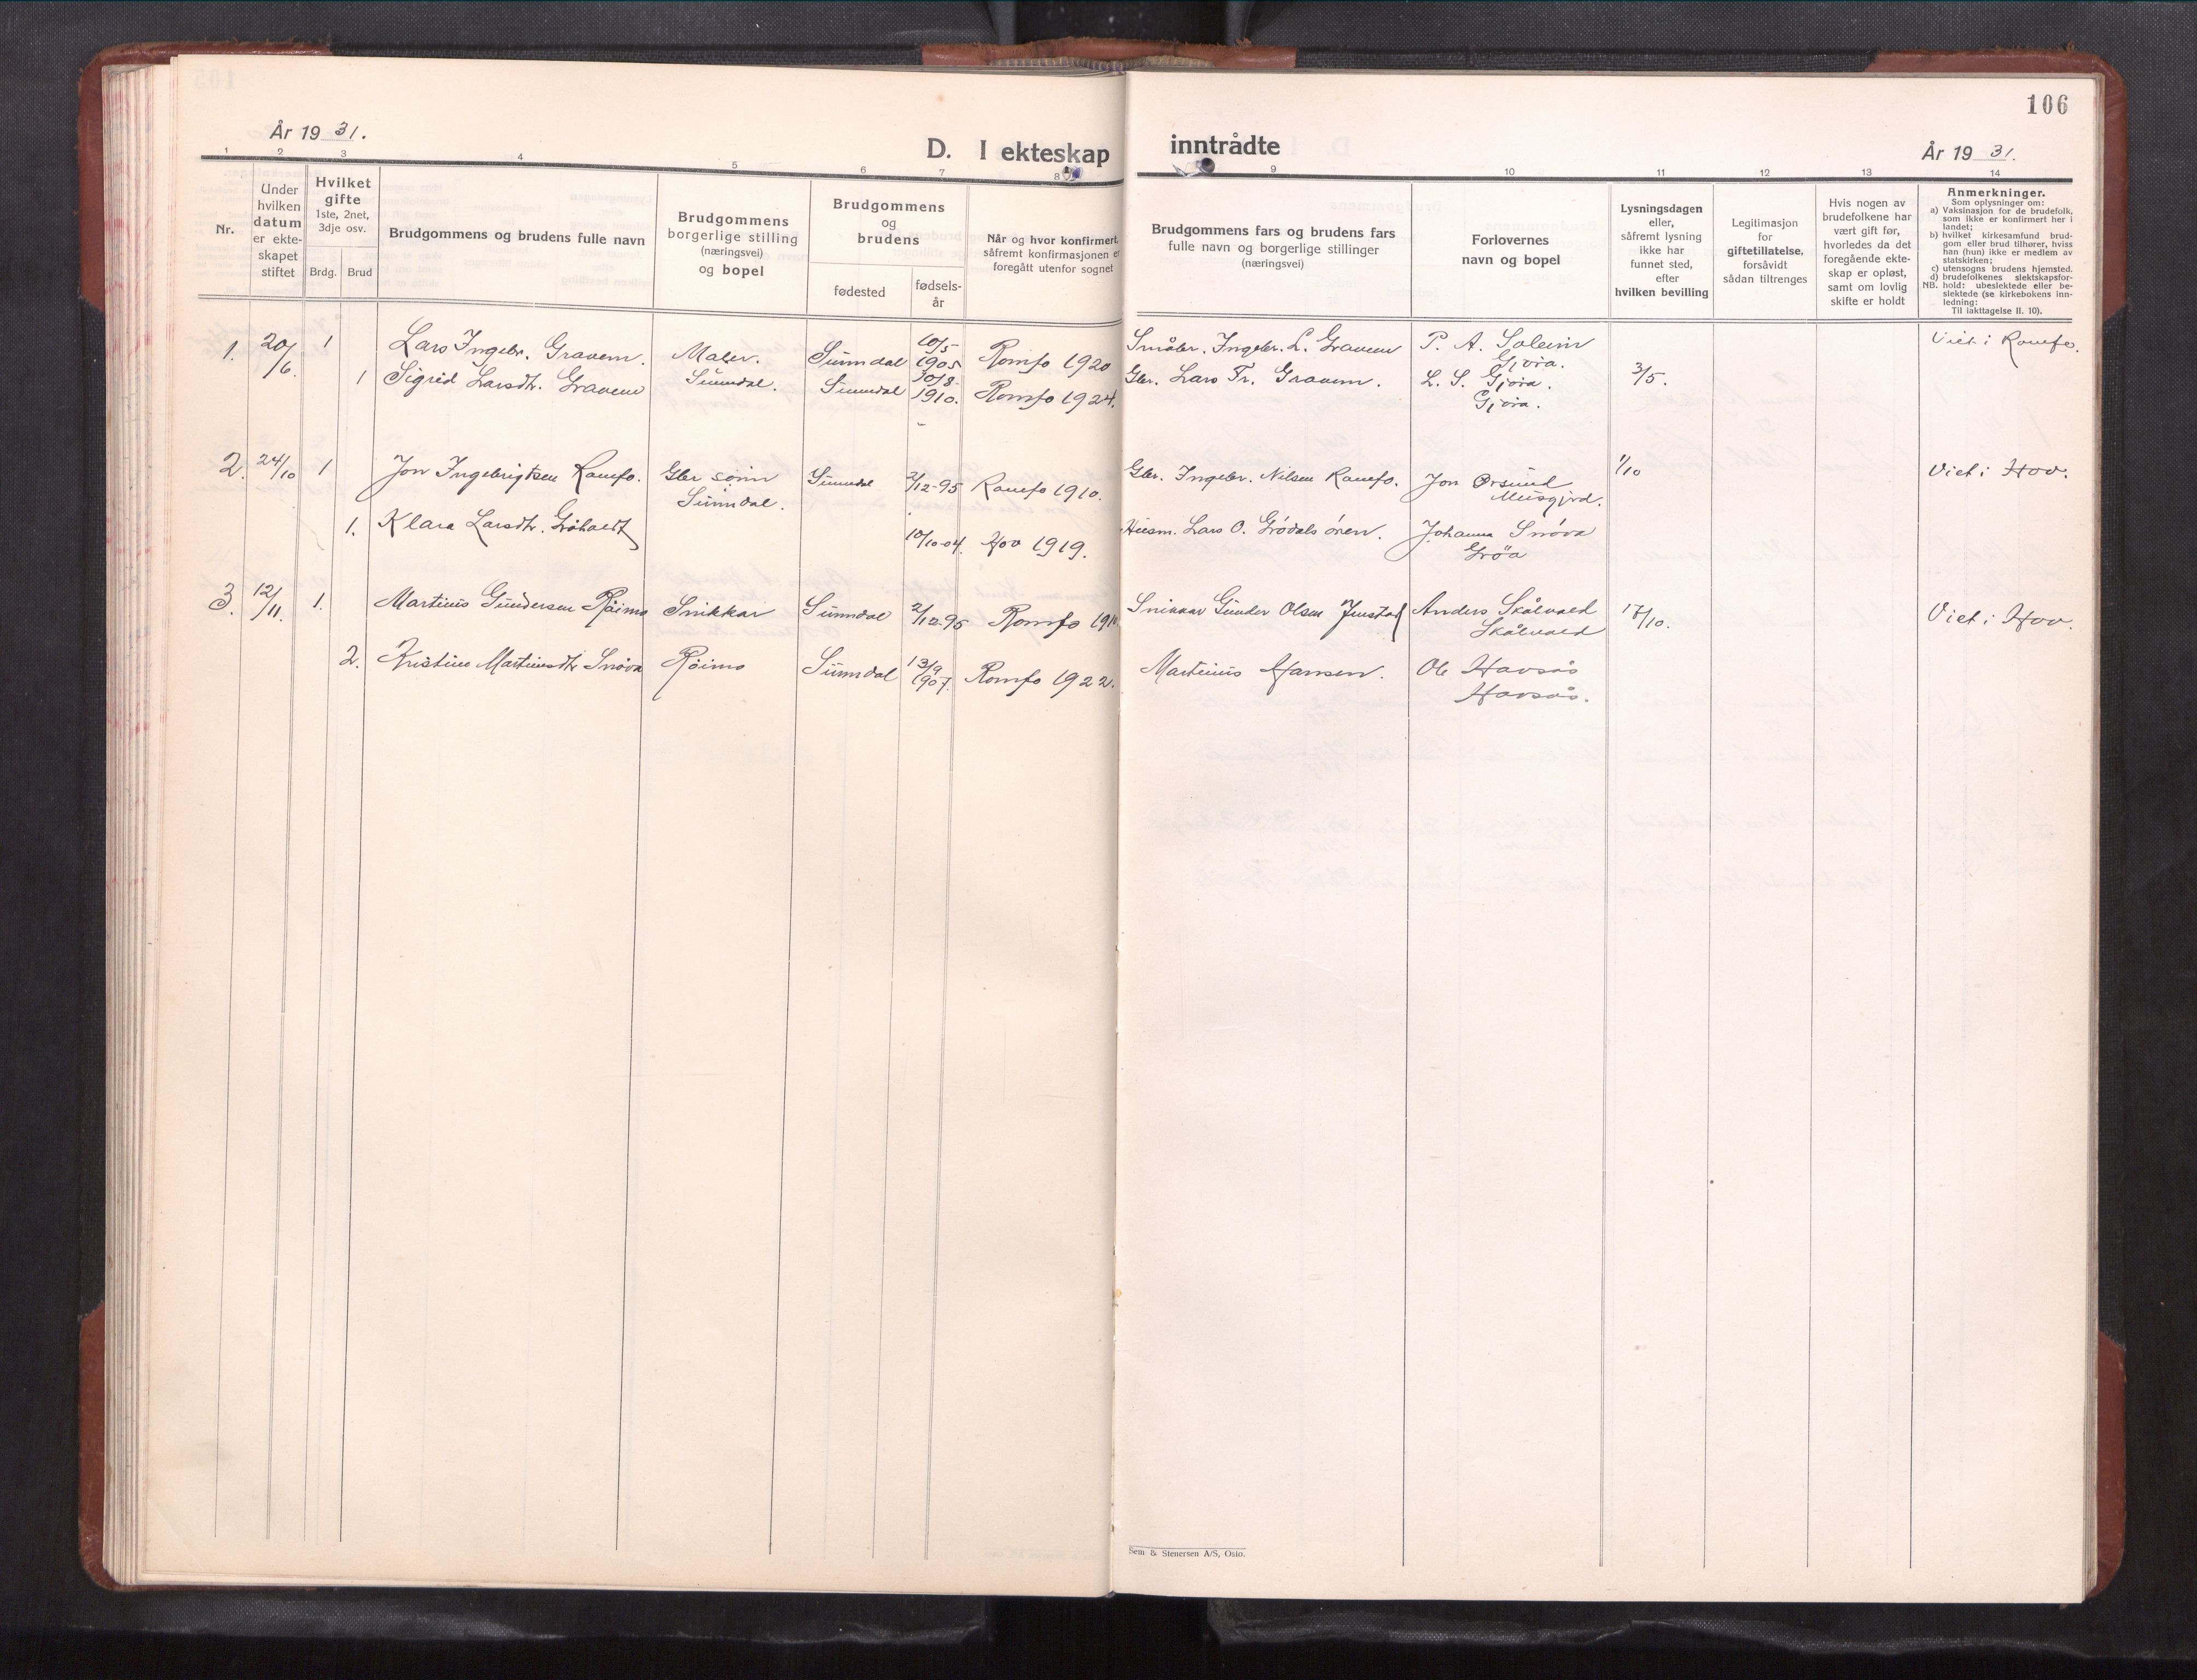 106
År 19 31.
D. I ekteskap inntrådte
År 19 31.
1 2 3 4 5 6 7 8 9 10 11 12 13 14
Nr.
Under
hvilken
datum
er ekte-
skapet
stiftet
Hvilket
gifte
1ste, 2net,
3dje osv.
Brdg. Brud
Brudgommens og brudens fulle navn
Brudgommens
borgerlige stilling
(næringsvei)
og bopel
Brudgommens
og
brudens
fødested
fødsels-
år
Når og hvor konfirmert,
såfremt konfirmasjonen er
foregått utenfor sognet
Brudgommens fars og brudens fars
fulle navn og borgerlige stillinger
(næringsvei)
Forlovernes
navn og bopel
Lysningsdagen
eller,
såfremt lysning
ikke har
funnet sted,
efter
hvilken bevilling
Legitimasjon
for
giftetillatelse,
forsåvidt
sådan tiltrenges
Hvis nogen av
brudefolkene har
vært gift før,
hvorledes da det
foregående ekte-
skap er opløst,
samt om lovlig
skifte er holdt
Anmerkninger.
Som oplysninger om:
a) Vaksinasjon for de brudefolk,
som ikke er konfirmert her i
landet;
b) hvilket kirkesamfund brud-
gom eller brud tilhører, hviss
han (hun) ikke er medlem av
statskirken;
c) utensogns brudens hjemsted.
d) brudefolkenes slektskapsfor-
NB. hold: ubeslektede eller be-
slektede (se kirkebokens inn-
ledning:
Til iakttagelse II. 10).
1. 20/6. 1 Lars Ingebr. Gravem. Maler. Sunndal 10/5 1905 Romfo 1920 Småbr. Ingebr. L. Gravem P. A. Soleim Gjøra. 3/5. Viet i Romfo.
1 Sigrid Larsdtr. Gravem Sunndal. Sunndal 30/8- 1910. Romfo 1924. Gbr. Lars Tr. Gravem. L. S. Gjøra. Gjøra.
2. 24/10 1 Jon Ingebrigtsen Romfo. Gbr sønn Sunndal. Sunndal 2/12-95 Romfo 1910. Gbr. Ingebr. Nilsen Romfo. Jon Ørsund Musgjrd. 1/10 Viet i Hov.
1. Klara Larsdtr. 10/10-04. Hov 1919. Husm. Lars O. Grødalsøren. Johanna Snøva Grøa
3. 12/11. 1. Martinus Gundersen Røimo Snikkar Sunndal 2/12-95 Romfo 191 Snikkar Gunder Olsen Jenstad Anders Skålvold Skålvold 17/10. Viet i Hov.
2. Kristine Martinusdtr Snøva Røimo Sunndal 13/9 1907. Romfo 1922. Martinus Hansen. Ole Havsås Havsås.
Sem & Stenersen A/S, Oslo.